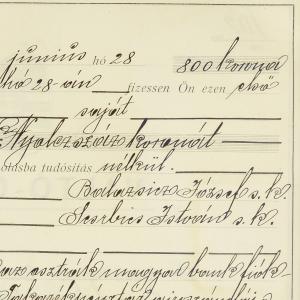 junius hó 28 800 korona
hó 28-án fizessen Ön ezen első
saját
Nyolczszáz koronát
oldásba tudósítás nélkül.
Balazsicz József s.k.
István s.k.
az osztrák magyar bank fiók-